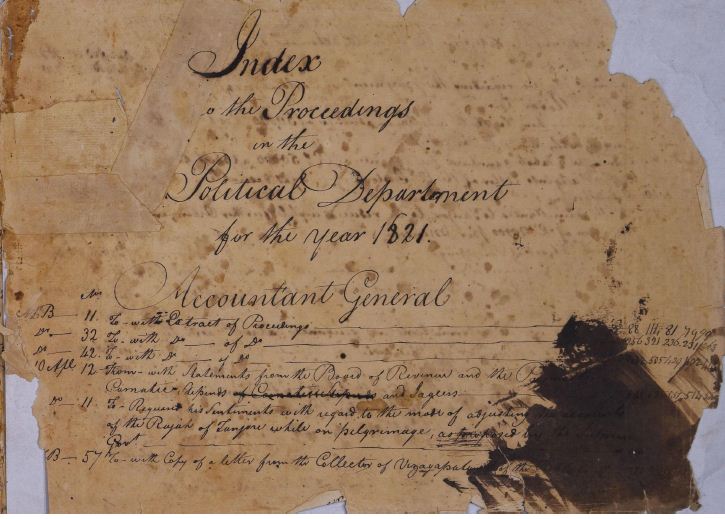 Index
o the Proceedings
in the
Political Department
for the Year 1821.
Accountant General
No
B — 11. To - with Extract of Proceedings
Do — 32 To - with Do — of Do
Do — 42 To - with Do — of Do
Apl 12 From - with Statements from the Board of Revenue and the
Carnatic Stipends and Jageers
Do — 11 To - Request his Sentiments with regard to the mode of adjusting
of the Rajah of Tanjore while on pilgrimage, as proposed by the
Govt
B — 57 To - with Copy of a letter from the Collector of Vizagapatam of the